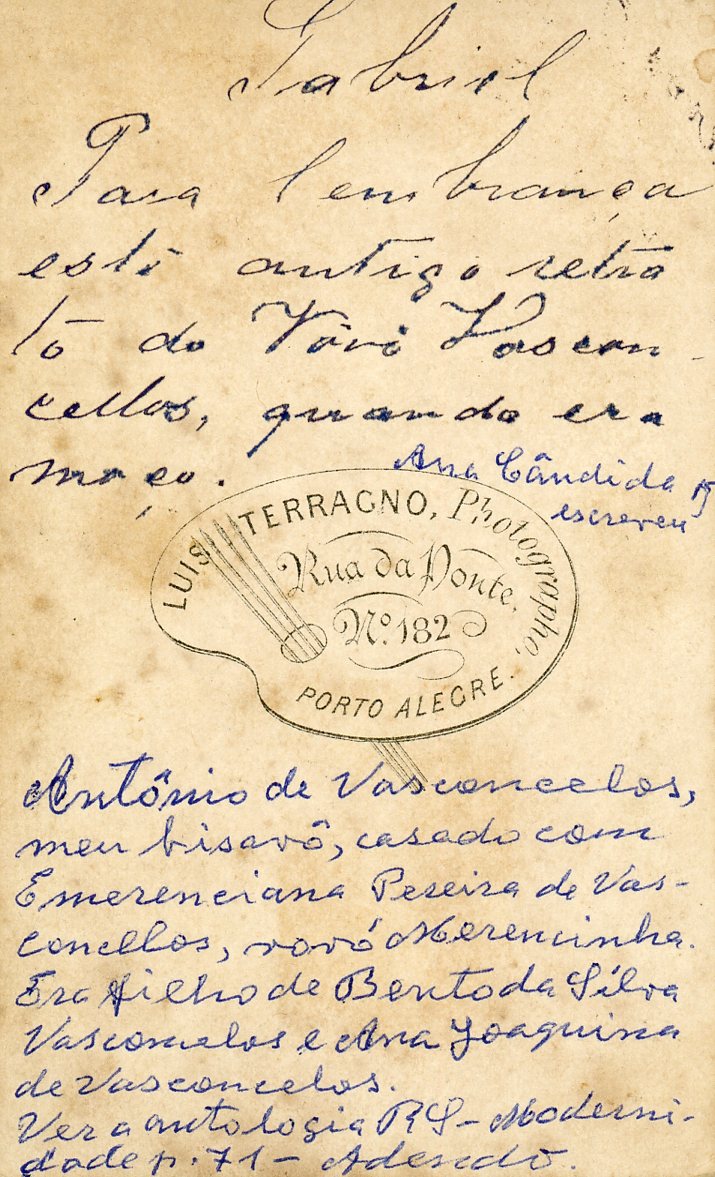 Gabriel
Para lembrança
este antigo retra
to do Vôvô Vascon-
cellos, quando era
moço.
Ana Cândida
escreveu
LUIS TERRAGNO, Photographo,
Rua da Ponte,
Nº. 182
PORTO ALEGRE.
Antônio de Vasconcelos,
meu bisavô, casado com
Emerenciana Pereira de Vas-
concellos, vovó Merencinha.
Era filho de Bento da Silva
Vasconcelos e Ana Joaquina
de Vasconcelos.
Ver a antologia RS - Moderni-
dade p. 71 - Adendo.